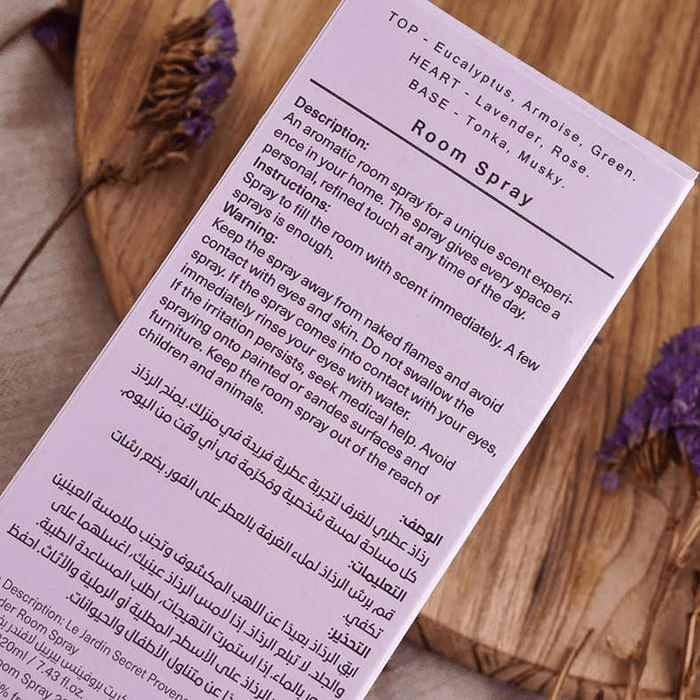 TOP - Eucalyptus, Armoise, Green.
HEART - Lavender, Rose.
BASE - Tonka, Musky.
Room Spray
Description:
An aromatic room spray for a unique scent experi-
ence in your home. The spray gives every space a
personal, refined touch at any time of the day.
Instructions:
Spray to fill the room with scent immediately. A few
sprays is enough.
Warning:
Keep the spray away from naked flames and avoid
contact with eyes and skin. Do not swallow the
spray. If the spray comes into contact with your eyes,
immediately rinse your eyes with water.
If the irritation persists, seek medical help. Avoid
spraying onto painted or sandes surfaces and
furniture. Keep the room spray out of the reach of
children and animals.
الوصف:
رذاذ عطري للغرف لتجربة عطرية فريدة في منزلك. يمنح الرذاذ
كل مساحة لمسة شخصية ومكرّمة في أي وقت من اليوم.
التعليمات:
قم برش الرذاذ لملء الغرفة بالعطر على الفور. بضع رشات
تكفي.
التحذير:
ابق الرذاذ بعيدًا عن اللهب المكشوف وتجنب ملامسة العينين
والجلد. لا تبلع الرذاذ. إذا لامس الرذاذ عينيك، اغسلهما على
بالماء. إذا استمرت التهيجات، اطلب المساعدة الطبية.
الرذاذ على الأسطح المطلية أو الرملية والأثاث. احفظ
عن متناول الأطفال والحيوانات.
Description: Le Jardin Secret Provence
Room Spray
20ml / 7.43 fl oz.